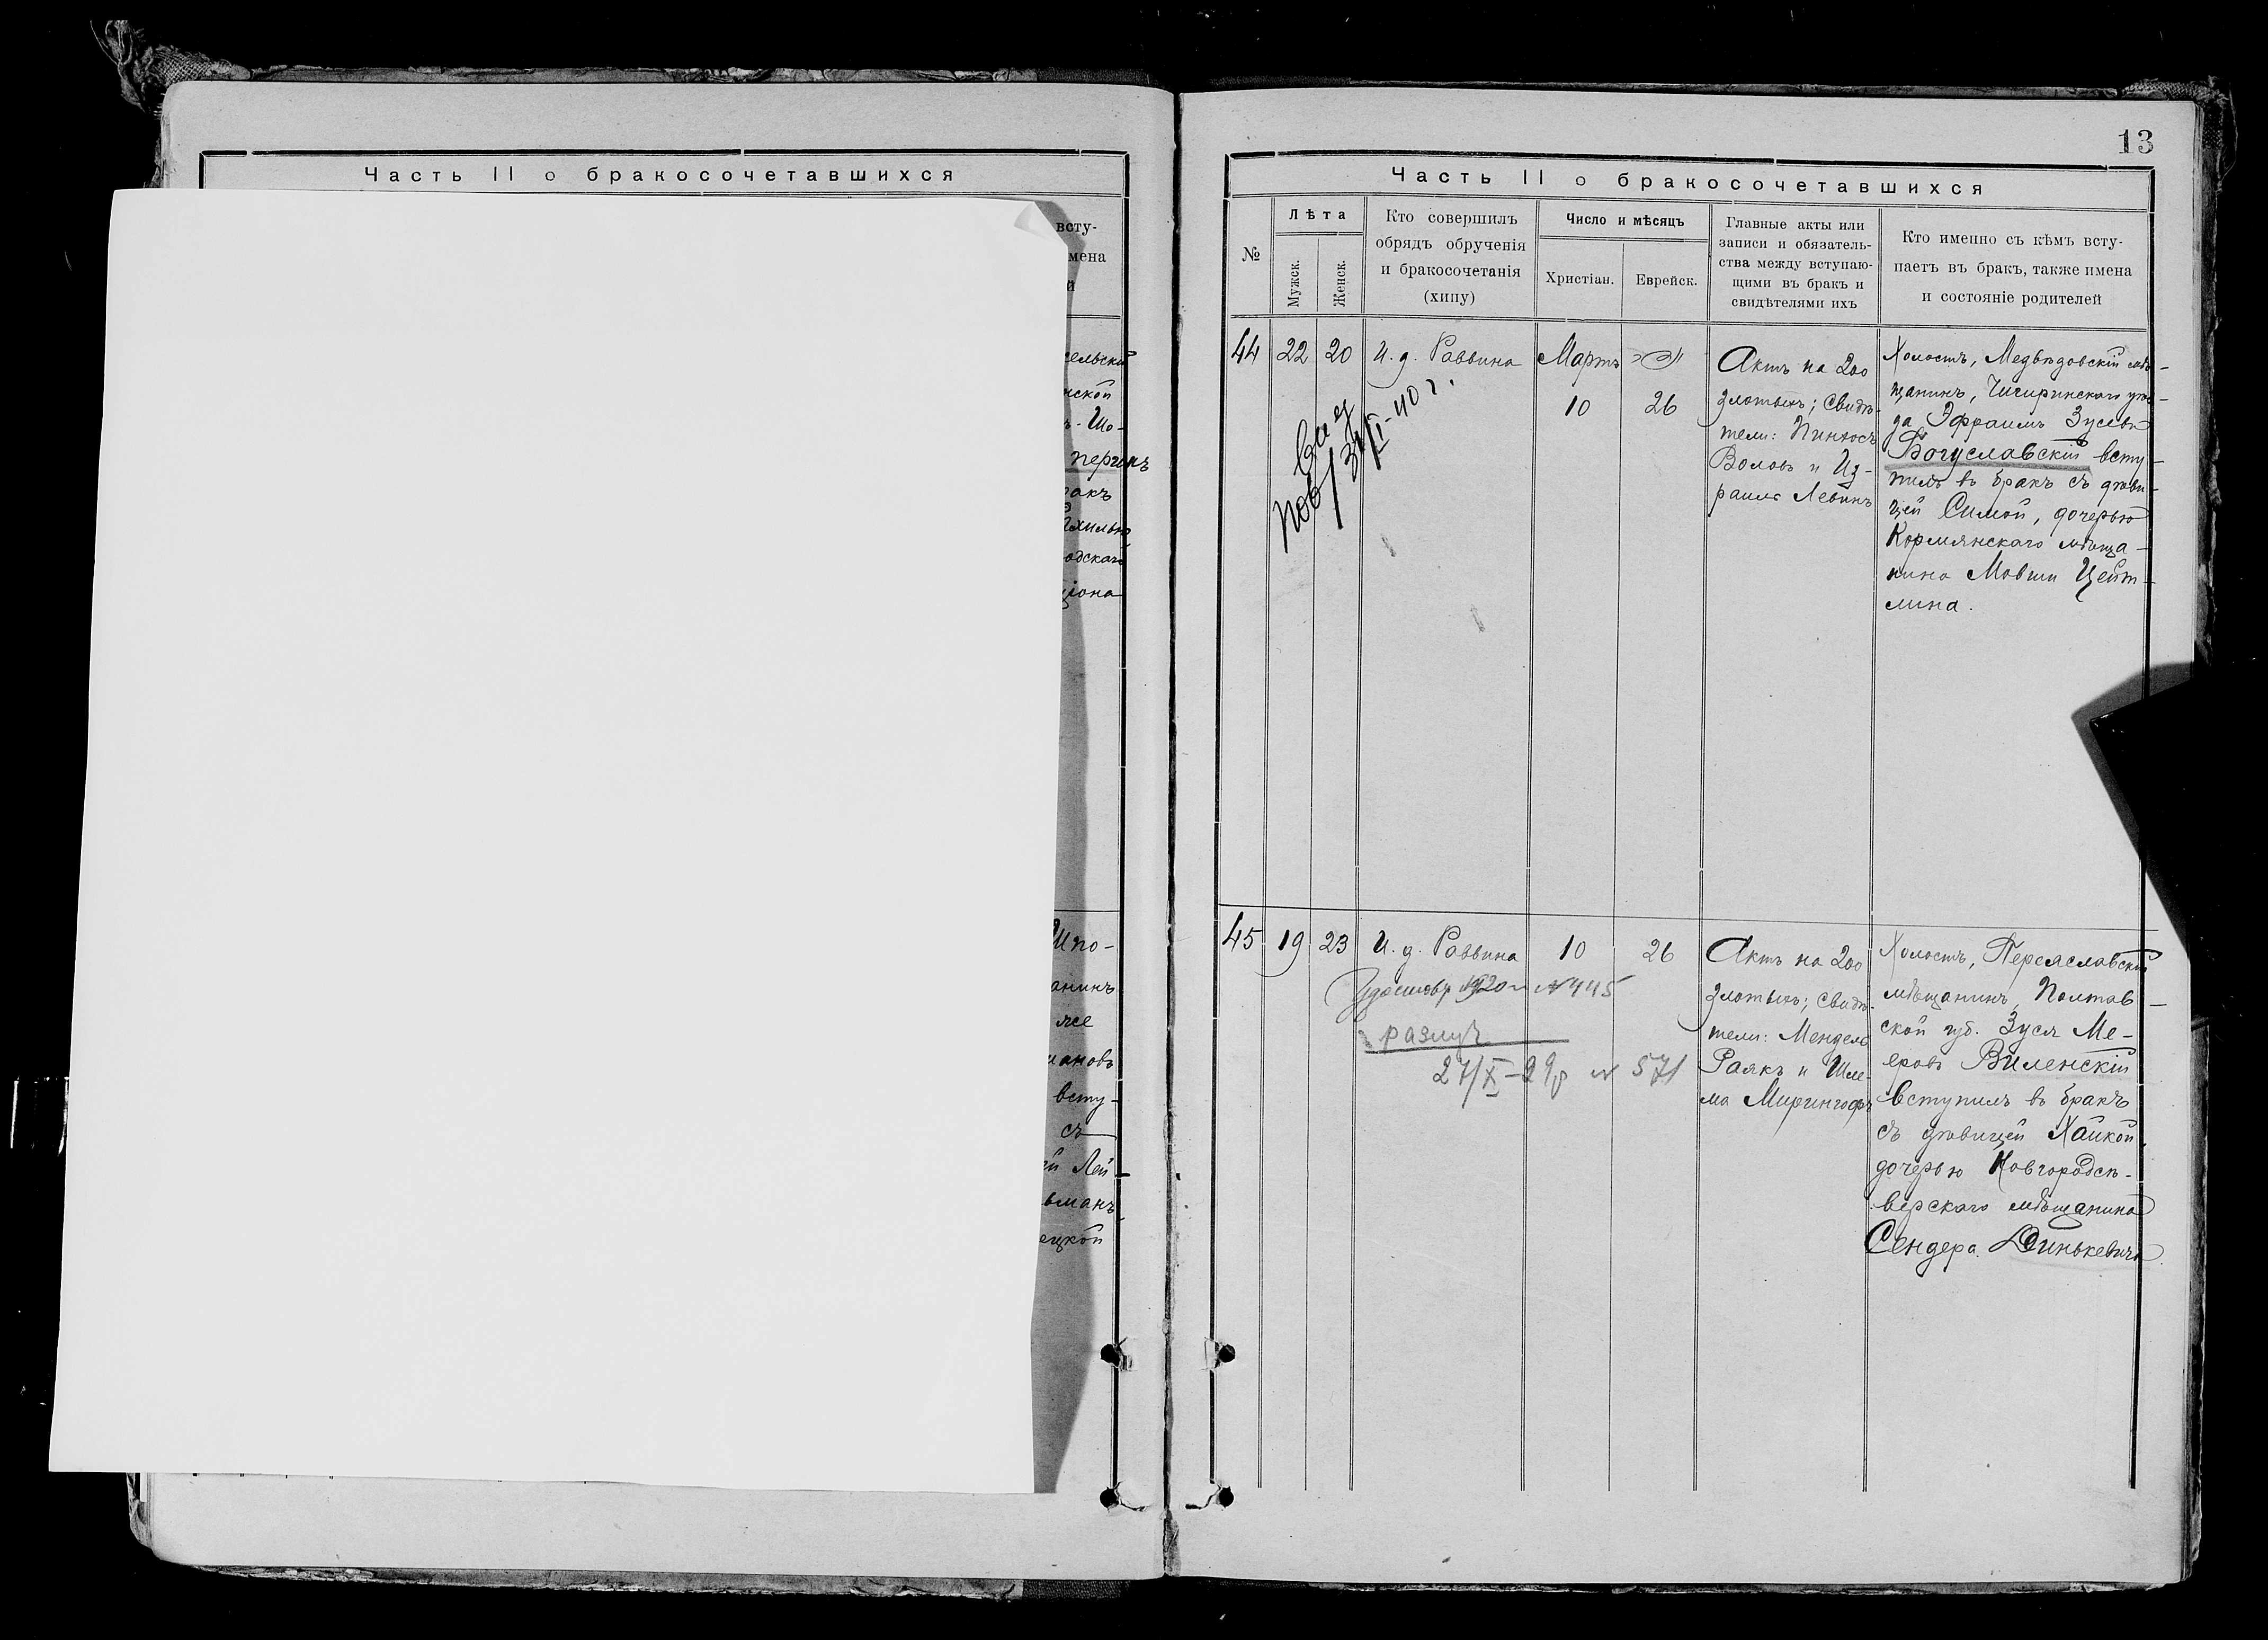 Часть II о бракосочетавшихся
всту-
мена
й
сельскій
нской
ъ-Шо-
перикъ
ракъ
одскаго
ціона
Шпо-
анинъ
ясе
мановъ
всту-
съ
ей Лей-
ьманъ
ецкой
13
Часть II о бракосочетавшихся
№
Лѣта
Мужск.
Женск.
Кто совершилъ
обрядъ обрученія
и бракосочетанія
(хипу)
Число и мѣсяцъ
Христіан.
Еврейск.
Главные акты или
записи и обязатель-
ства между вступаю-
щими въ бракъ и
свидѣтелями ихъ
Кто именно съ кѣмъ всту-
паетъ въ бракъ, также имена
и состояніе родителей
44 22 20 И. д. Раввина
Мартъ
10 26
Актъ на 200
злотыхъ; Свидѣ-
тели: Пинхосъ
Воловъ и Из-
раиль Левинъ
Холостъ, Медвѣдовскій мѣ-
щанинъ, Чигиринскаго уѣз-
да Эфраимъ Зусевъ
Богуславскій всту-
пилъ въ бракъ съ дѣви-
цей Симой, дочерью
Кормянскаго мѣща-
нина Мовши Цейт-
лина.
пов/
31/I-40 г.
45 19 23 И. д. Раввина 10 26
1920 г. № 445
развед
27/X-29 г № 571
Актъ на 200
злотыхъ; Свидѣ-
тели: Мендель
Раякъ и Шле-
ма Мирингофъ
Холостъ, Переяславскій
мѣщанинъ, Полтав-
ской губ. Зусь Ме-
еровъ Виленскій
вступилъ въ бракъ
съ дѣвицей Хайкой,
дочерью Новгородсѣ-
верскаго мѣщанина
Сендера Динькевича.